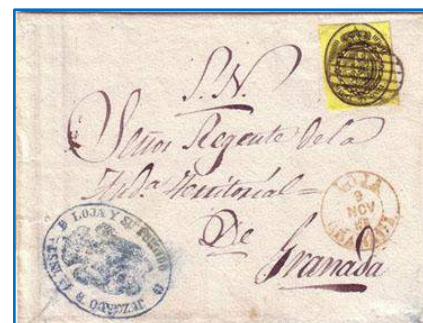 S. N.
Señor Regente de la
Aud.ª Territorial =
De
Granada
LOJA
9
NOV
JUZGADO DE 1ª INSTª DE LOJA Y SU PARTIDO